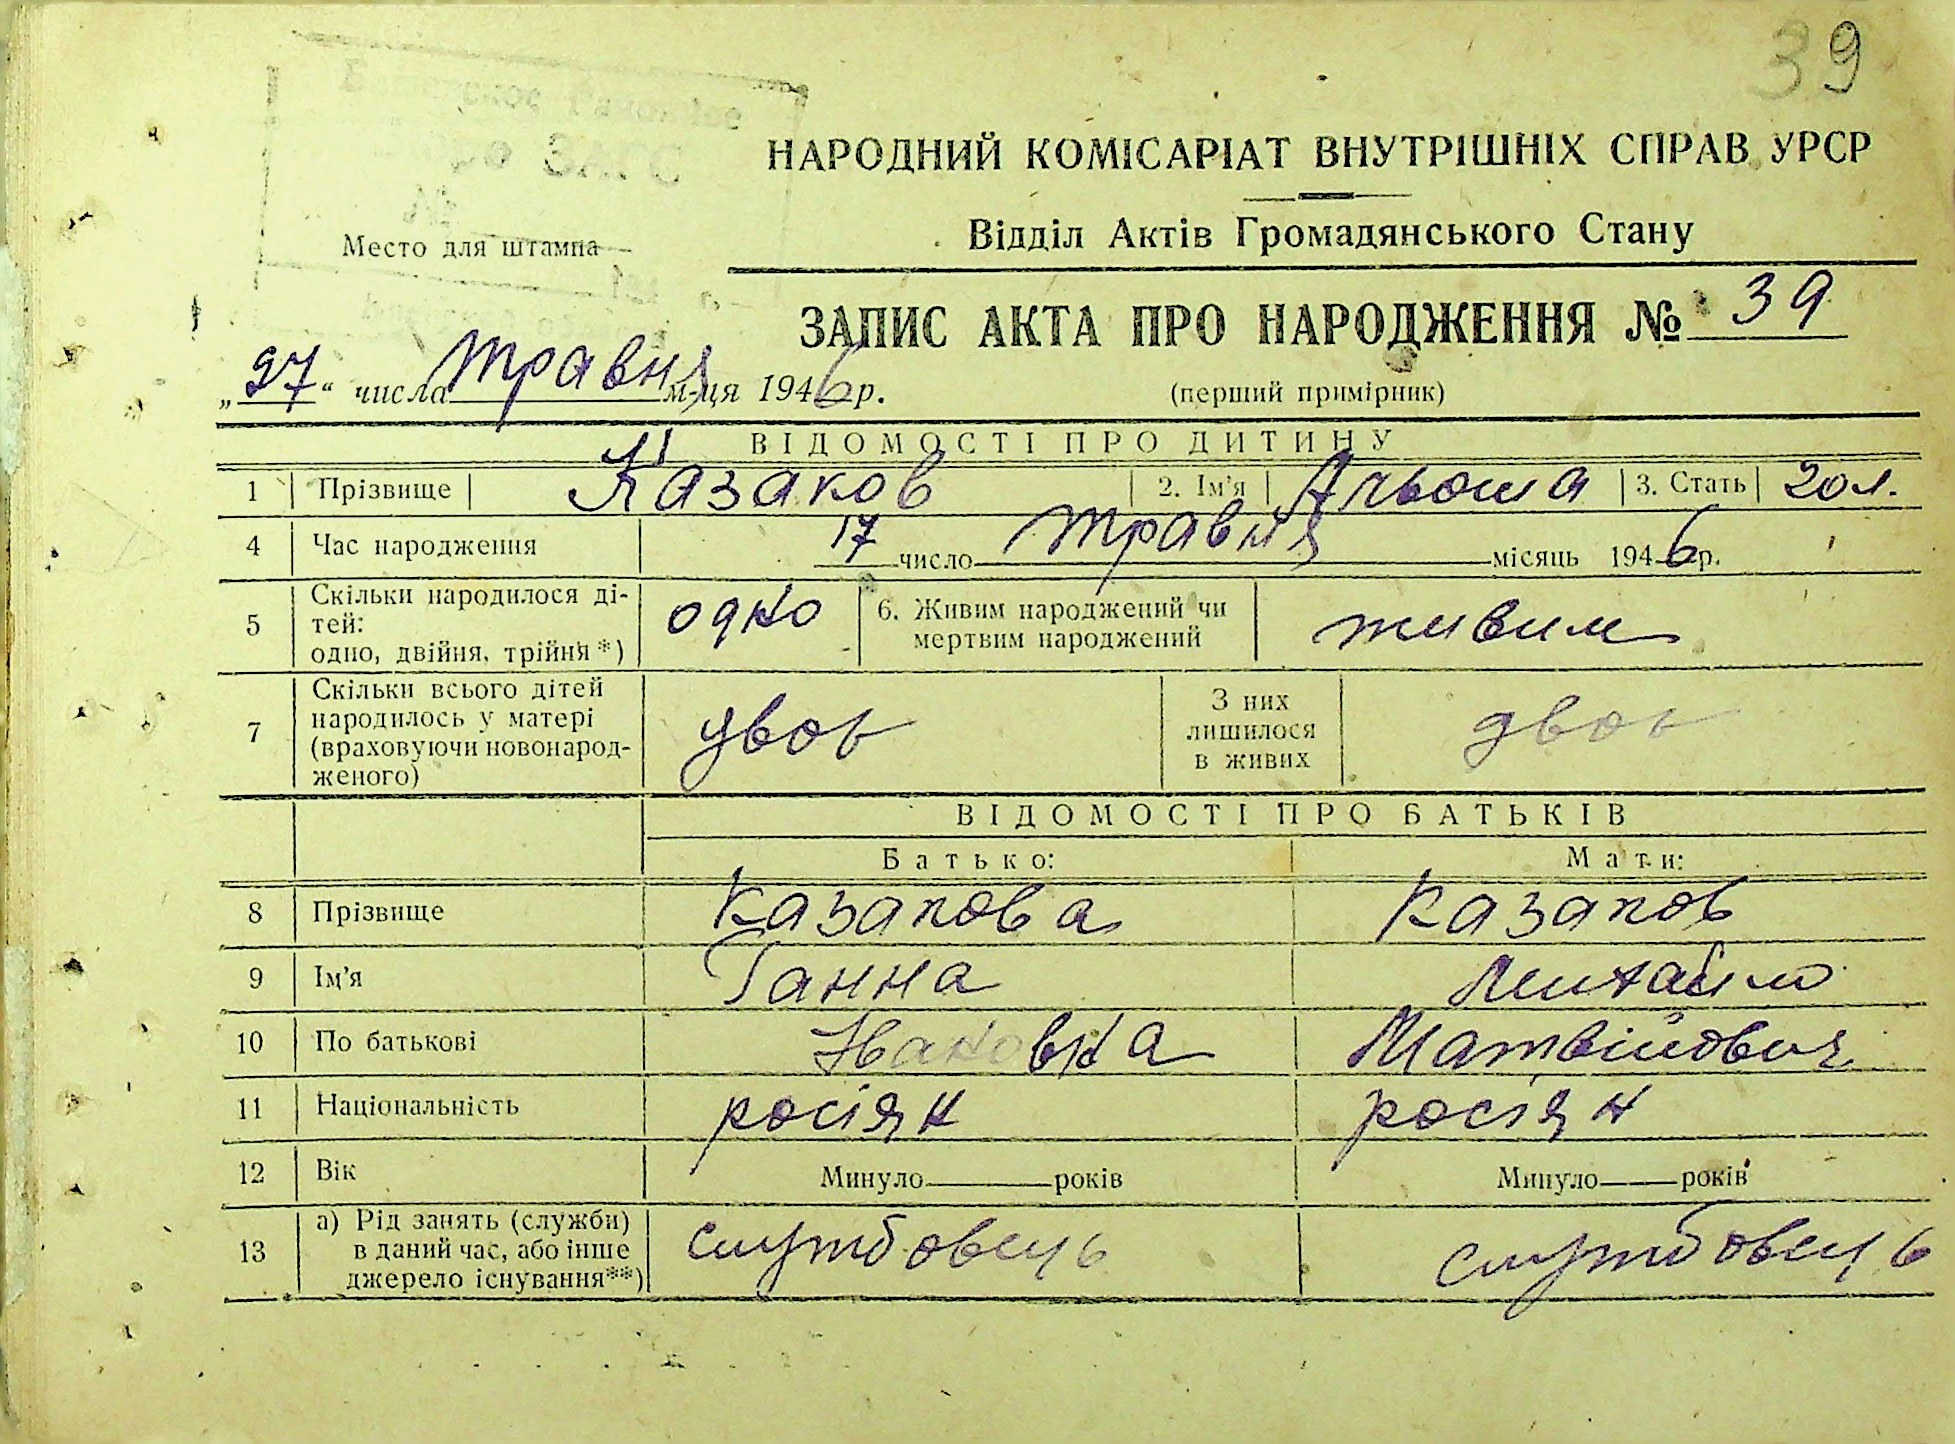 39
НАРОДНИЙ КОМІСАРІАТ ВНУТРІШНІХ СПРАВ УРСР
Відділ Актів Громадянського Стану
Место для штампа
ЗАПИС АКТА ПРО НАРОДЖЕННЯ № 39
„27“ числа травня м-ця 1946 р.
(перший примірник)
ВІДОМОСТІ ПРО ДИТИНУ
1 Прізвище Казаков 2. Ім'я Альоша 3. Стать чол.
4 Час народження 17 число травня місяць 1946 р.
5 Скільки народилося ді-
тей:
одно, двійня, трійня*) одно 6. Живим народжений чи
мертвим народжений живим
7 Скільки всього дітей
народилось у матері
(враховуючи новонарод-
женого) двоє З них
лишилося
в живих двоє
ВІДОМОСТІ ПРО БАТЬКІВ
Батько: Мати:
8 Прізвище Казакова Казаков
9 Ім'я Ганна Михайло
10 По батькові Івановна Матвійович
11 Національність росіян росіян
12 Вік Минуло років Минуло років
13 а) Рід занять (служби)
в даний час, або інше
джерело існування**) службовець службовець